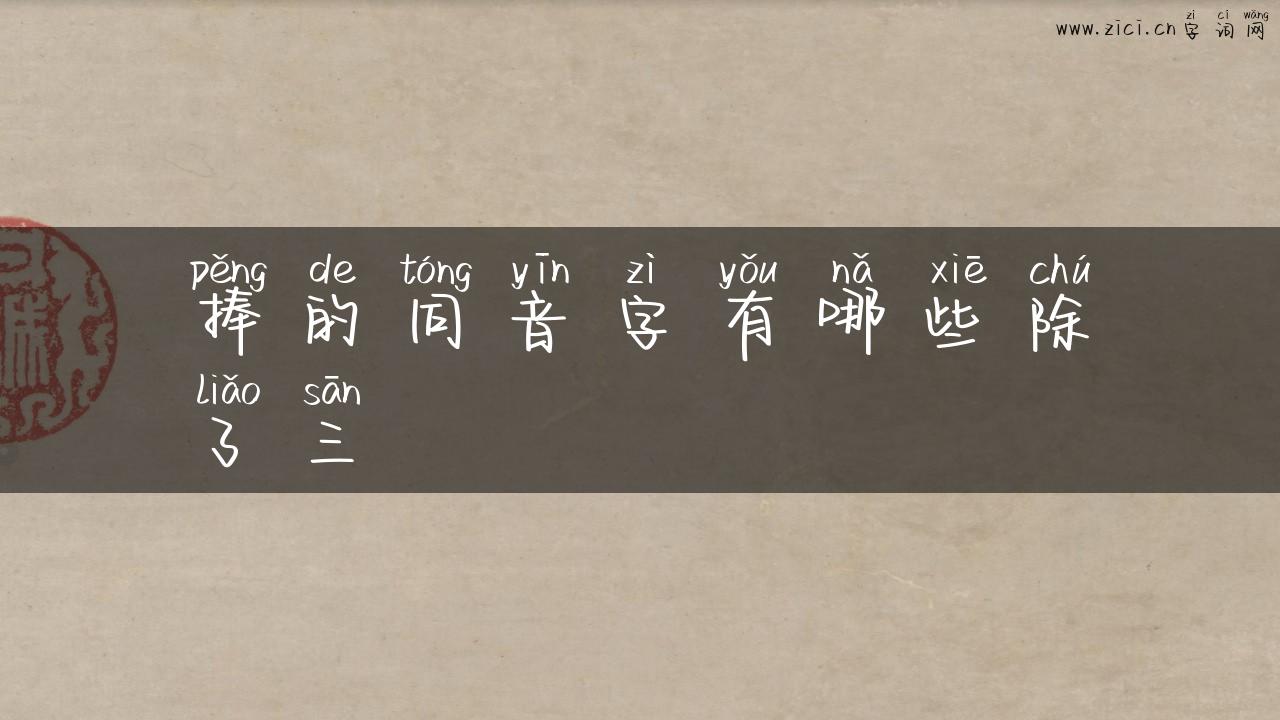 zì cí wǎng
www.zici.cn 字词网
pěng de tóng yīn zì yǒu nǎ xiē chú
捧的同音字有哪些除
liǎo sān
了三